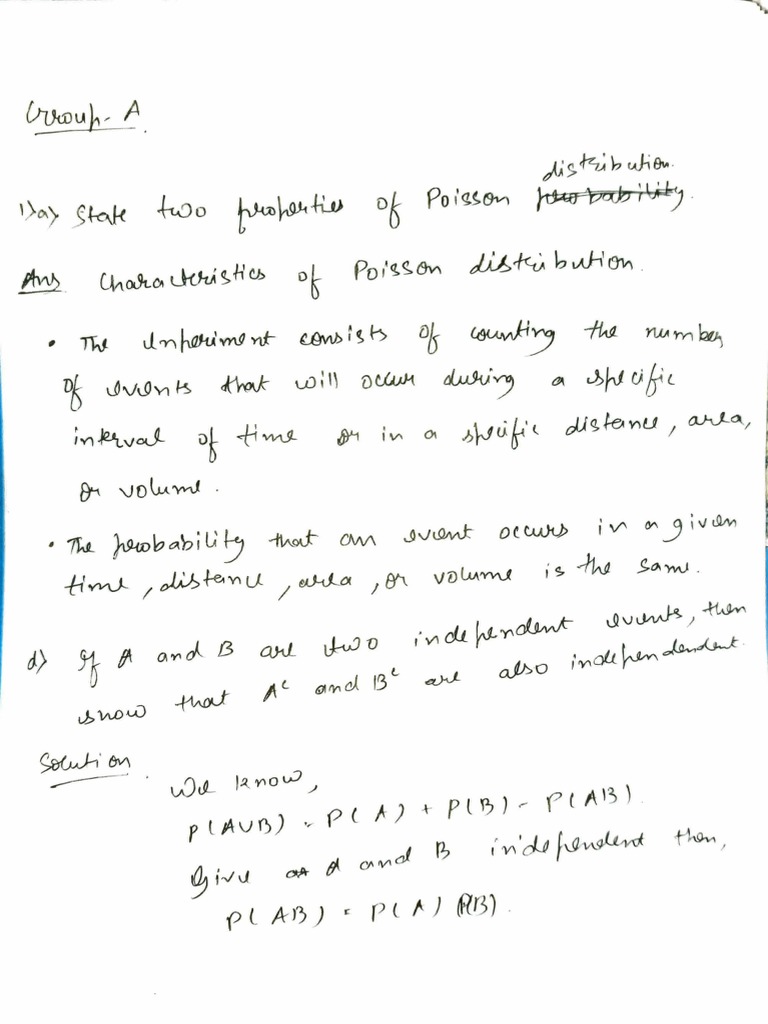 Group- A
distribution.
1)a) State two properties of Poisson probability.
Ans Characteristics of Poisson distribution.
• The Experiment consists of counting the number
of events that will occur during a specific
interval of time or in a specific distance, area,
or volume.
• The probability that an event occurs in a given
time, distance, area, or volume is the same.
d) If A and B are two independent events, then
show that Aᶜ and Bᶜ are also independendent.
Solution
We know,
P(AUB) = P(A) + P(B) - P(AB)
Give A and B independent then,
P(AB) = P(A) P(B).